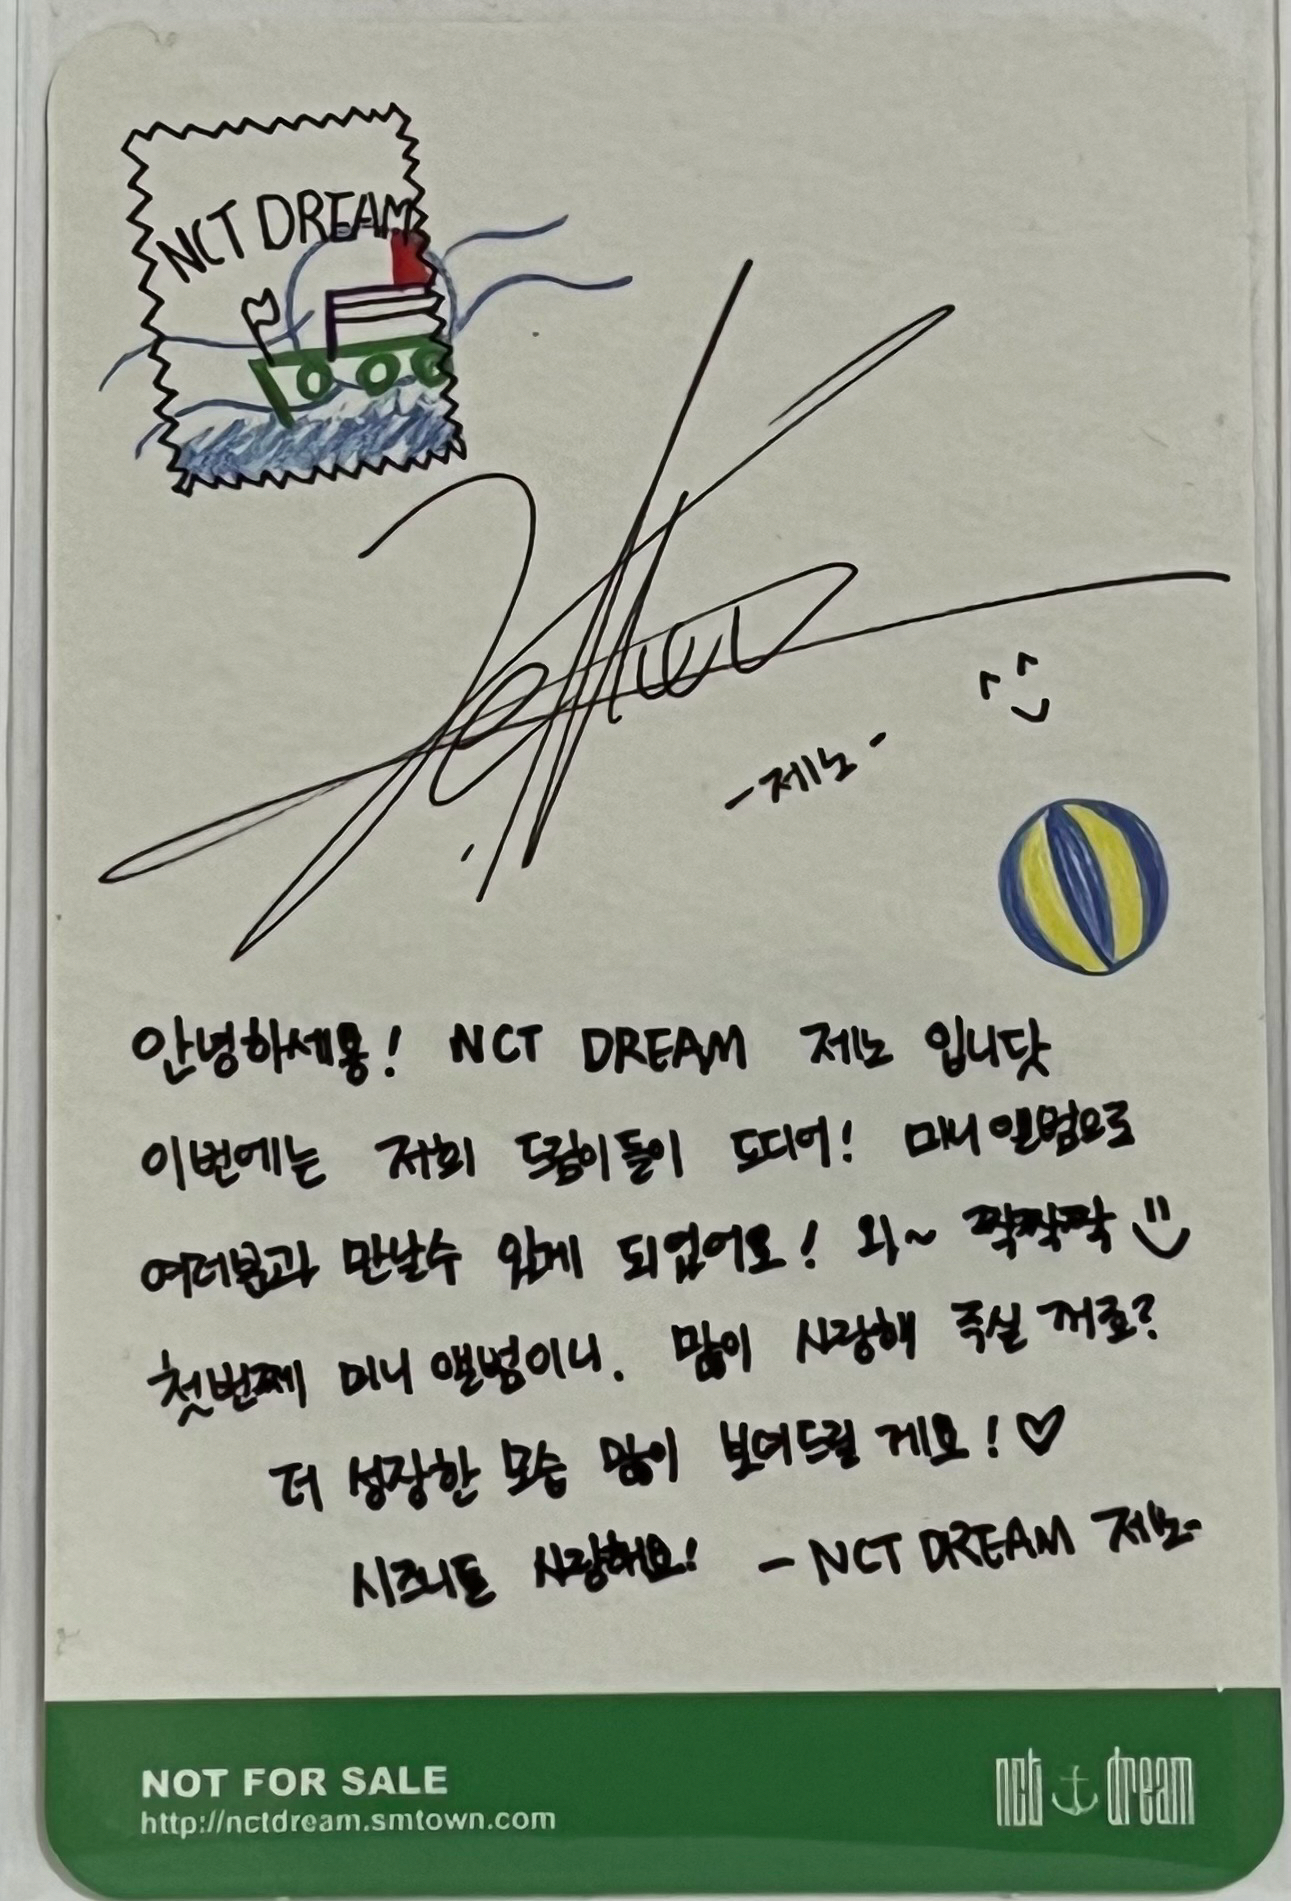 NCT DREAM
-제노-
안녕하세용! NCT DREAM 제노 입니닷
이번에는 저희 드림이들이 드디어! 미니앨범으로
여러분과 만날수 있게 되었어요! 와~ 짝짝짝
첫번째 미니 앨범이니. 많이 사랑해 주실 꺼죠?
더 성장한 모습 많이 보여드릴 게요! ♡
시즈니들 사랑해요! - NCT DREAM 제노-
NOT FOR SALE
http://nctdream.smtown.com
nct dream